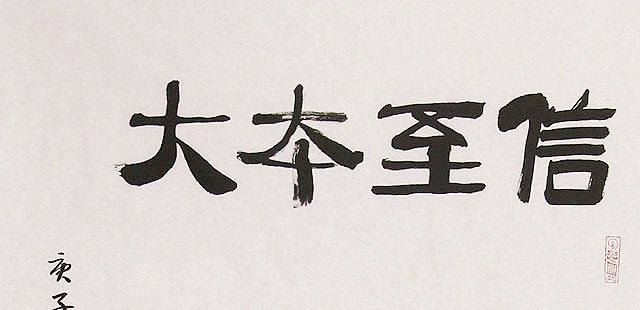 信至本大
庚子